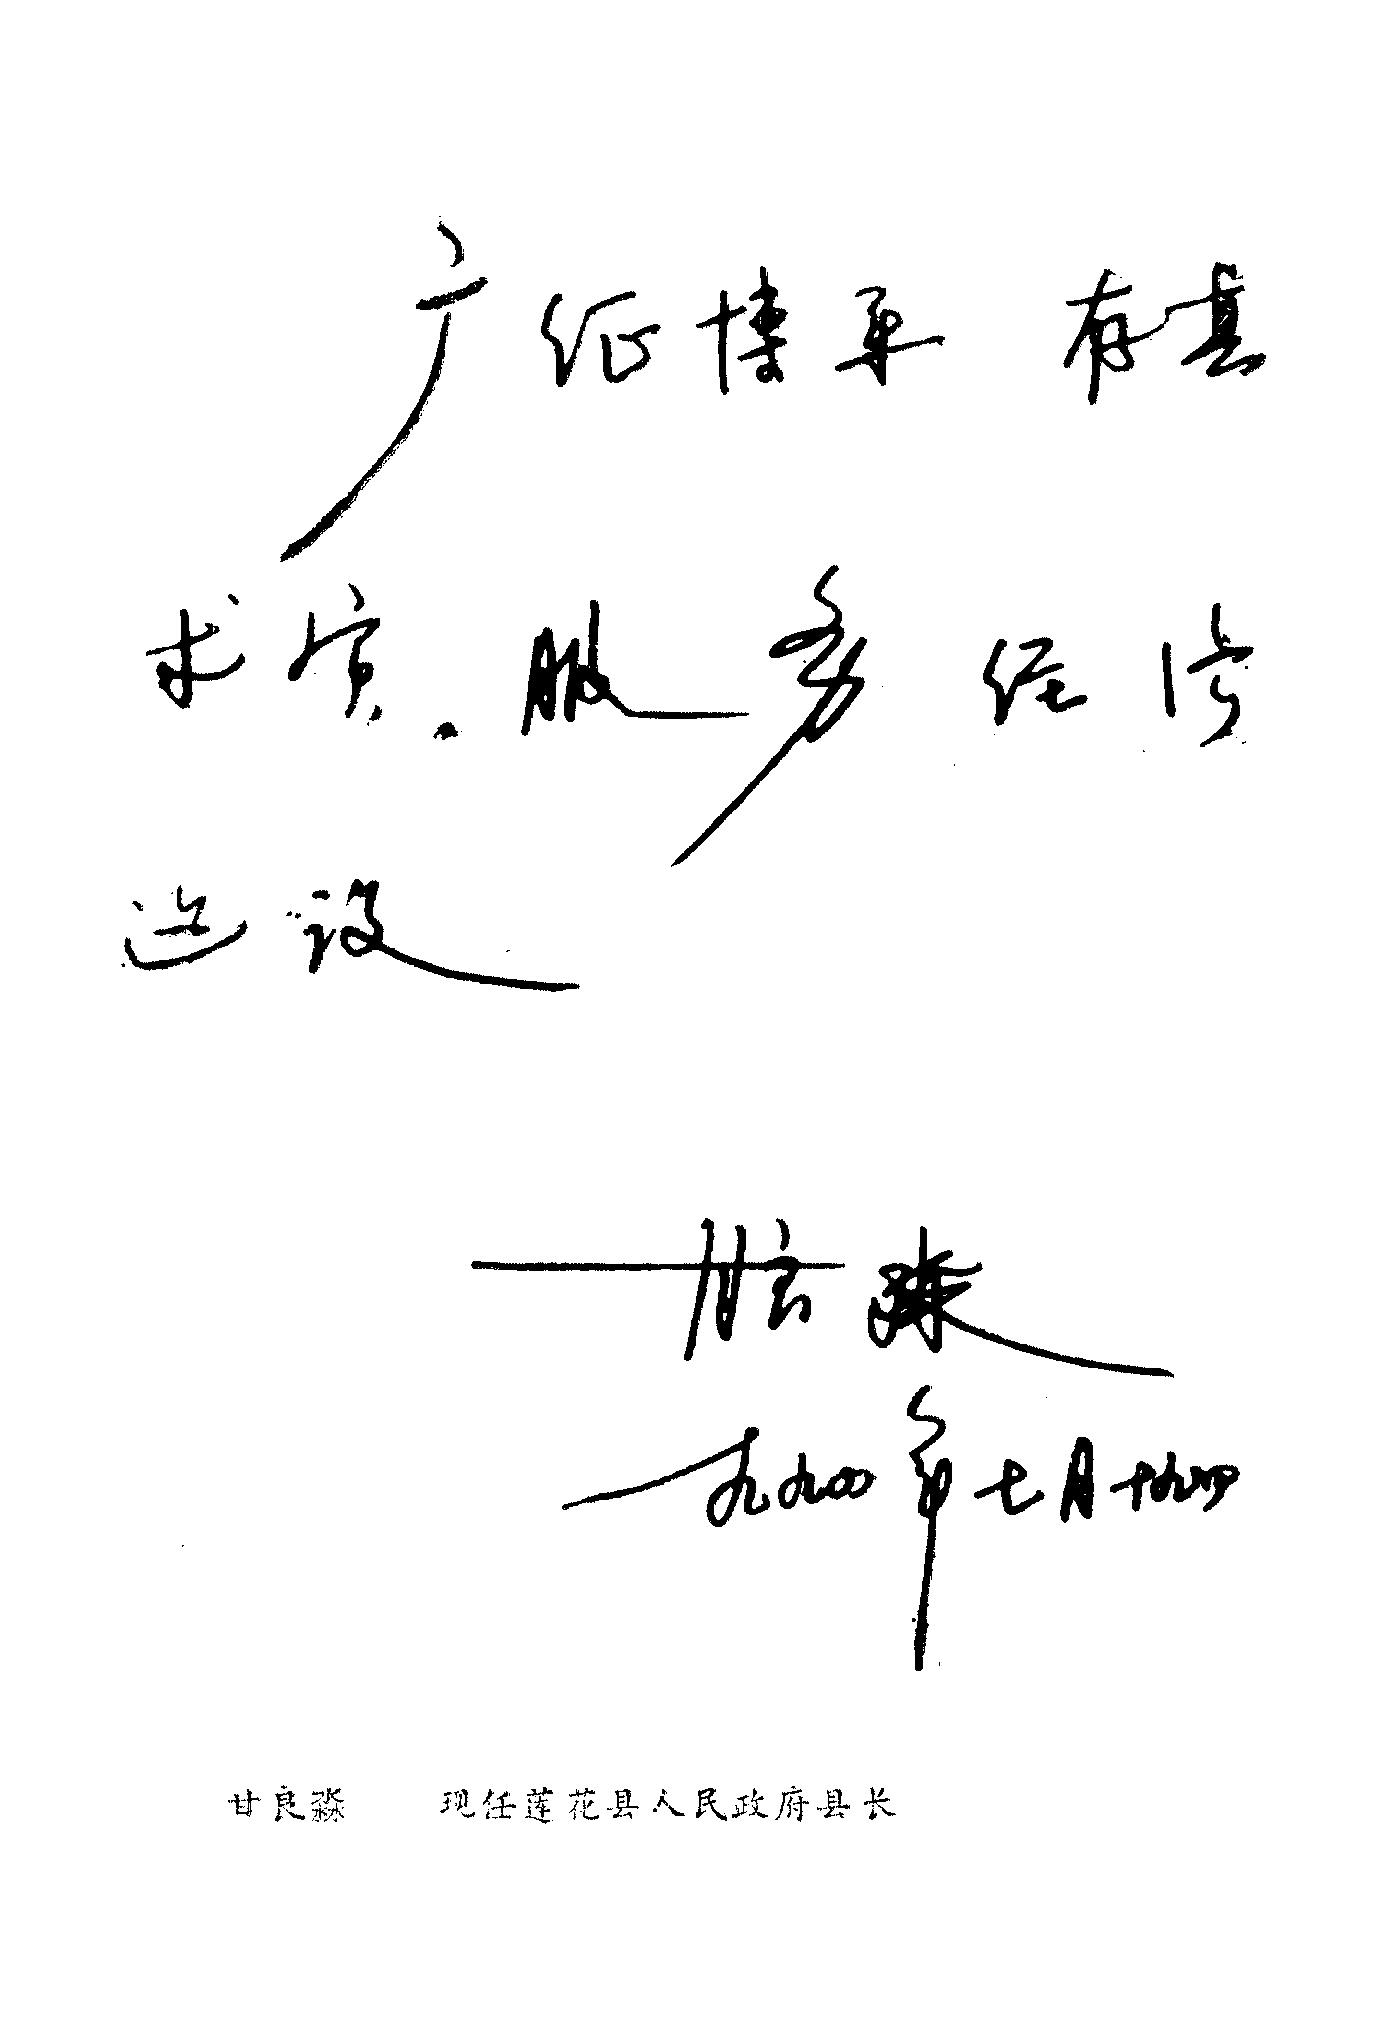 广征博采 存真
求实.服务经济
建设
甘良淼
一九九〇年七月十九日
甘良淼 现任莲花县人民政府县长